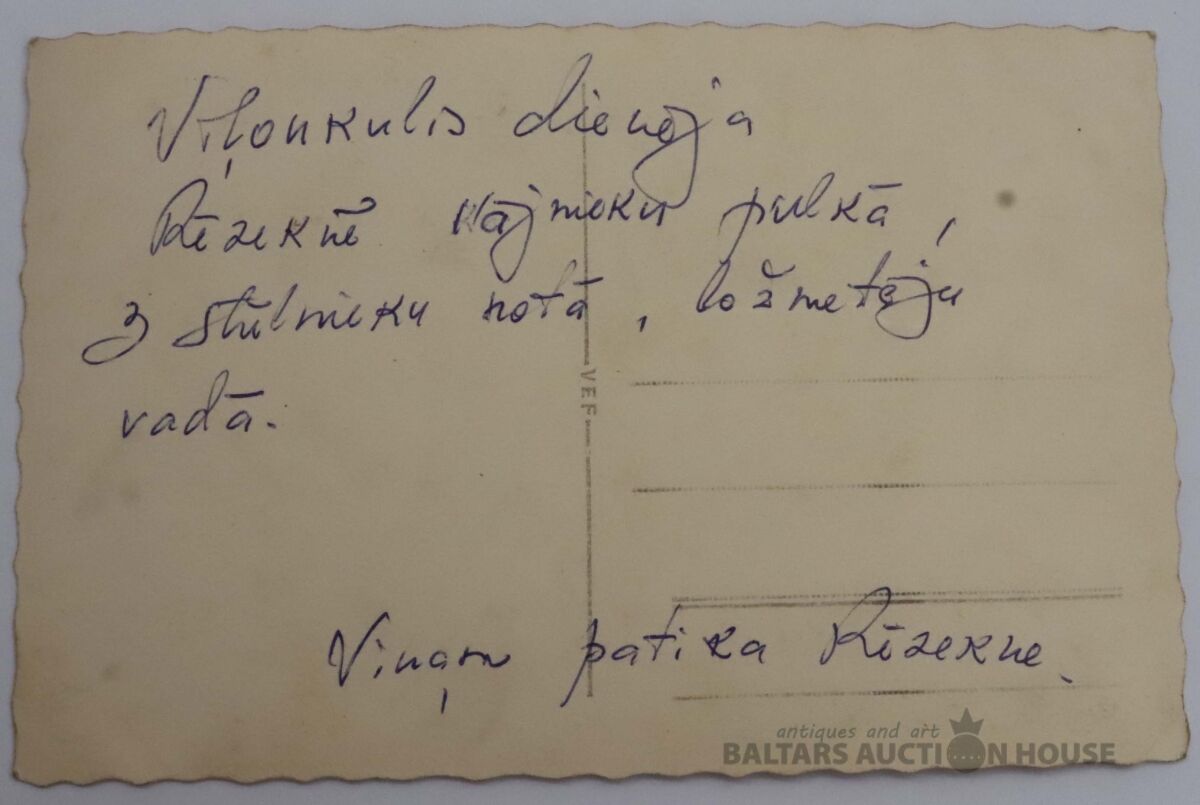 Viļonkulis dienēja
Rēzeknē kājnieku pulkā,
3 stūlmieku rotā, ložmetēju
vadā.
VEF
Viņam patika Rēzekne.
antiques and art
BALTARS AUCTION HOUSE